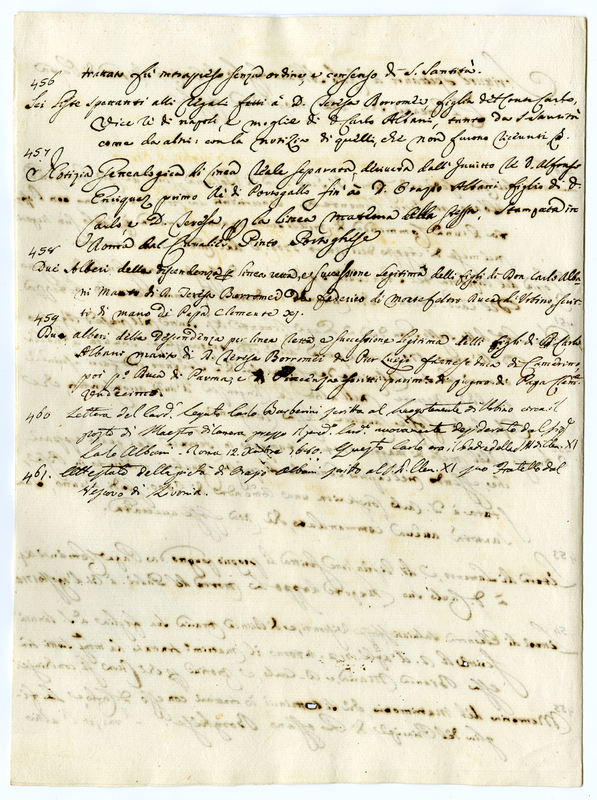 trattato fù intrapreso senza ordine, e consenso di S. Santità.
456
Sei liste spettanti alli Regali fatti à D. Teresa Borromèi figlia del Conte Carlo,
Vice Rè di Napoli, e moglie di D. Carlo Albani, tanto da S. Santità
come da altri: con la notizia di quelli, che non furono ricevuti
457
Notizia Genealogica di linea Reale separata, dedutta dall' Invitto Rè D. Alfonso
Enriquez primo Rè di Portogallo fin' à D. Orazio Albani figlio di D.
Carlo e D. Teresa, p la linea Materna della stessa, Stampata in
Roma dal Cavalier Pinto Portoghese
458
Due Alberi della dipendenza p linea retta, e successione legitima delli figli di Don Carlo Alba-
ni Marito di D. Teresa Borromeo da Federico di Montefeltro Duca d'Urbino scrit-
ti di mano di Papa Clemente XI.
459
Due alberi della Descendenza per linea retta e successione legitima delli figli di D. Carlo
Albani marito di D. Teresa Borromeo da Pier Luigi Farnese Duca di Camerino,
poi p.o Duca di Parma, e Piacenza scritti parimte di pugno di Papa Clem.
undecimo.
460 Lettera del Card.l Legato Carlo Barberini scritta al Luogotenente di Urbino circa il
posto di Maestro di Camera presso il Card. nuovamente desiderato dal Sig.r
Carlo Albani - Roma 12. 1660. Questo Carlo era il Padre della S. M. di Clem. XI
461. Attestato della pietà di Orazio Albani scritto al S. P. Clem. XI suo Fratello dal
Vescovo di